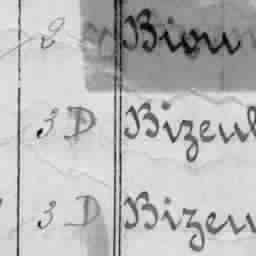 2 Biou
3 D Bizeul
3 D Bizeu